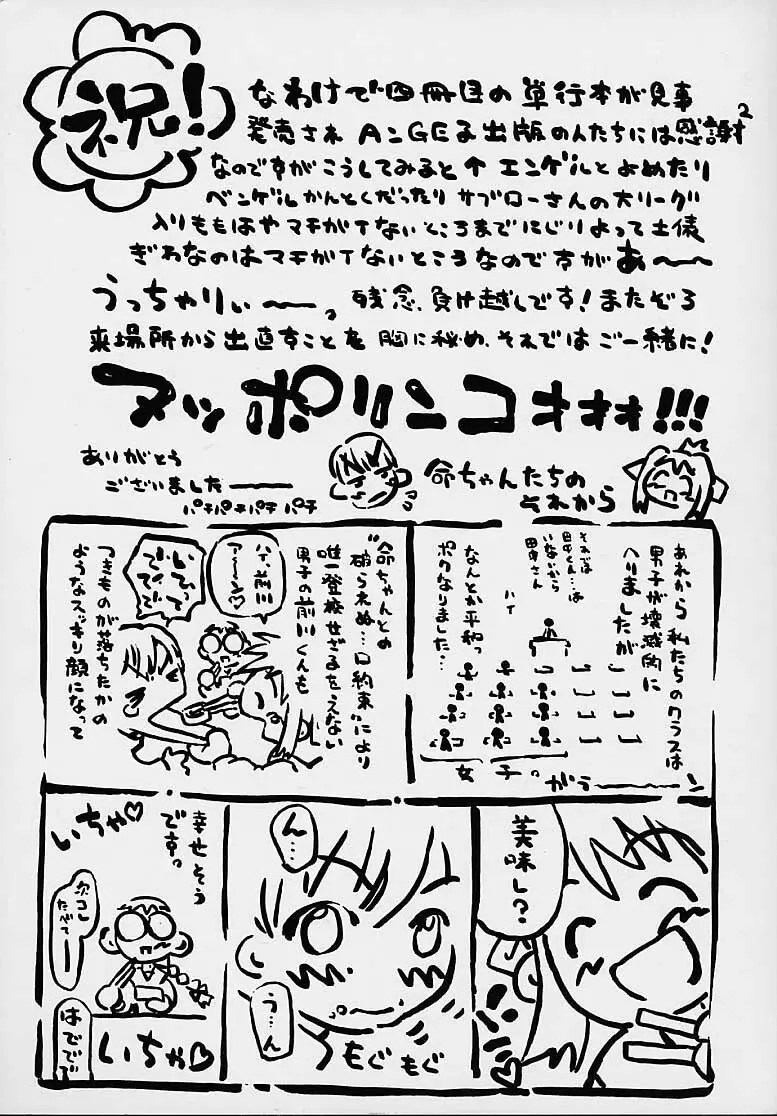 祝!
なわけで四冊目の単行本が見事
発売され AンGEる出版の人たちには感謝²
なのですがこうしてみると↑エンゲルとよめたり
ベンゲルかんとくだったり サブローさんの大リーグ
入りももはやマチガイないところまでにじりよって土俵
ぎわなのはマチガイないところなのですがあ〜〜
うっちゃりぃーーっ 残念、負け越しです!またぞろ
来場所から出直すことを胸に秘め、それではご一緒に!
マッポリンコオオオ!!!
ありがとう
ございました———
パチパチパチパチ
命ちゃんたちの
それから
あれから私たちのクラスは
男子が壊滅的に
へりましたが
それでは
田中くん…は
いないから
田中さん
ハイ
なんとか平和っ
ポクなりました…
女子っ
がら————ン
"命ちゃんとの
破らえぬ…口約束"により
唯一登校せざるをえない
男子の前川くんも
ハイ、前川
ア〜〜ン♡
つきものが落ちたかの
ようなスッキリ顔になって
美味し?
ん…
う…ん
もぐもぐ
幸せそう
ですっ
いちゃ♡
次コレ
たべてー
はででで
いちゃ♡